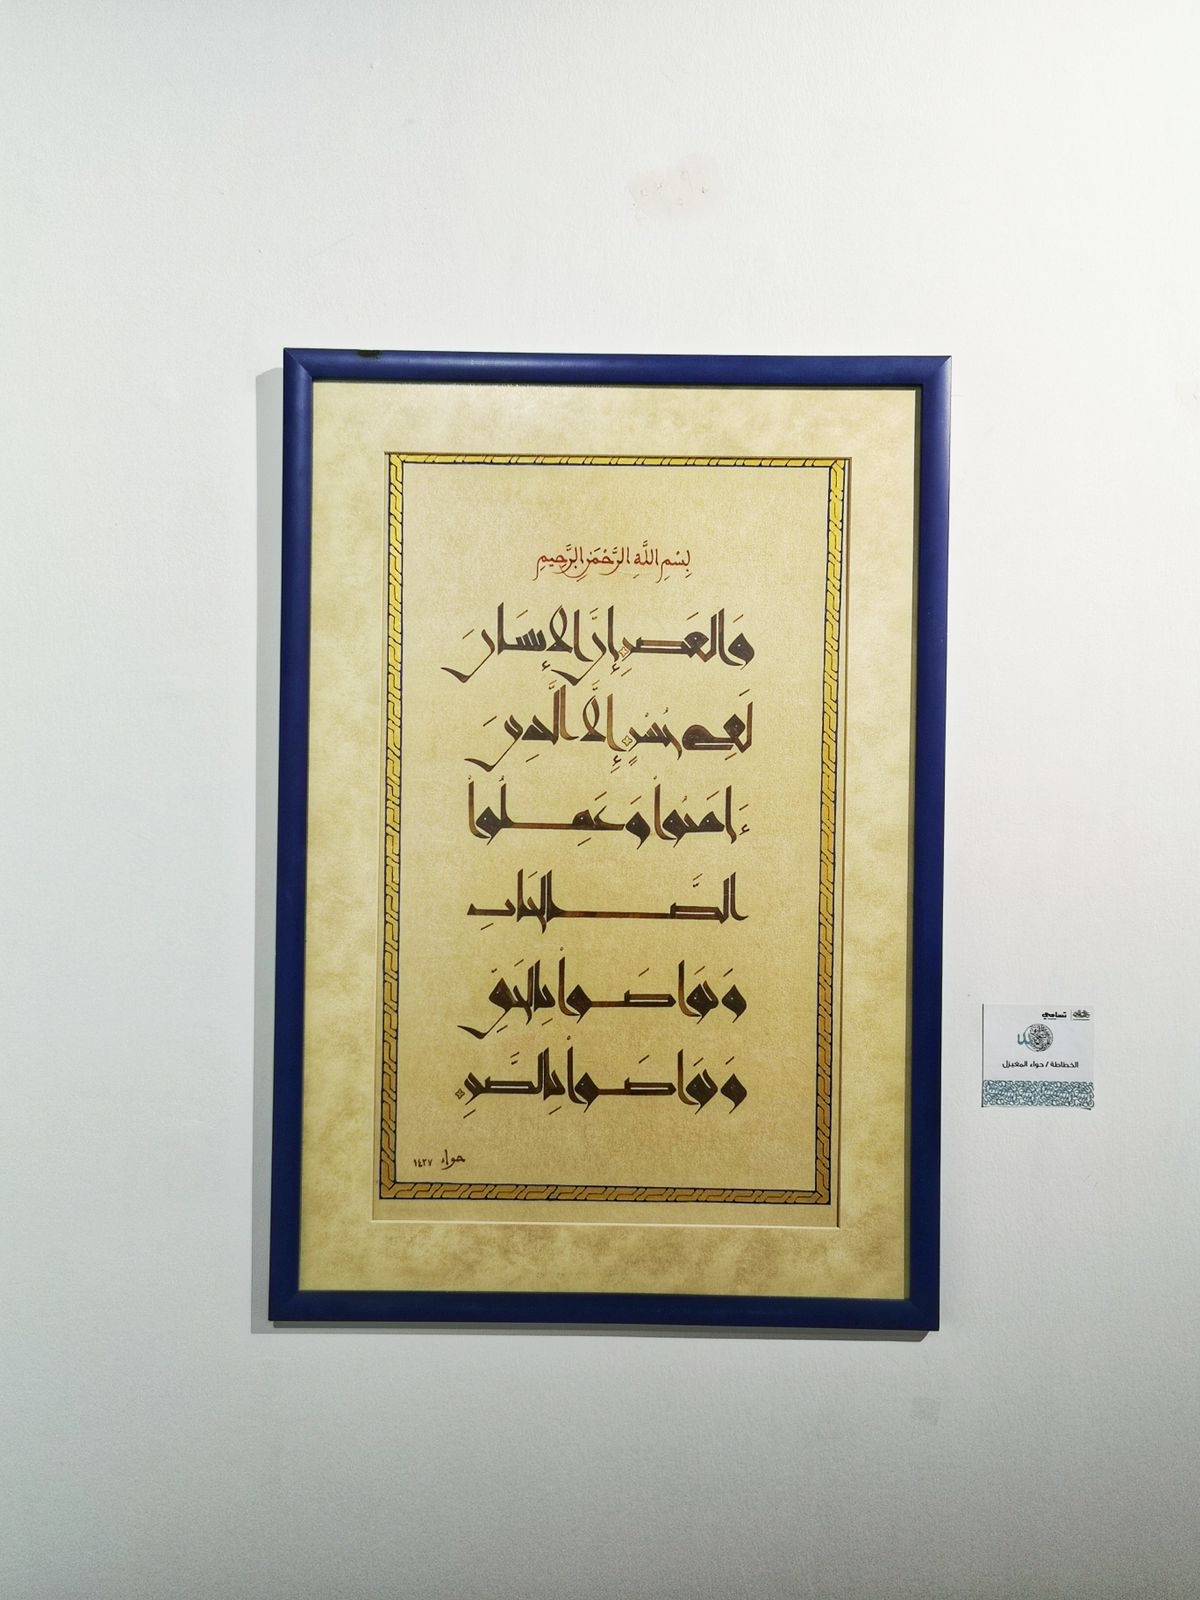 بِسْمِ اللَّهِ الرَّحْمَنِ الرَّحِيمِ
وَالْعَصْرِ إِنَّ الْإِنسَانَ
لَفِي خُسْرٍ إِلَّا الَّذِينَ
ءَامَنُواْ وَعَمِلُواْ
الصَّالِحَاتِ
وَتَوَاصَواْ بِالْحَقِّ
وَتَوَاصَواْ بِالصَّبْرِ
حواء ١٤٣٧
تسامي
الخطاطة / حواء المغيزل